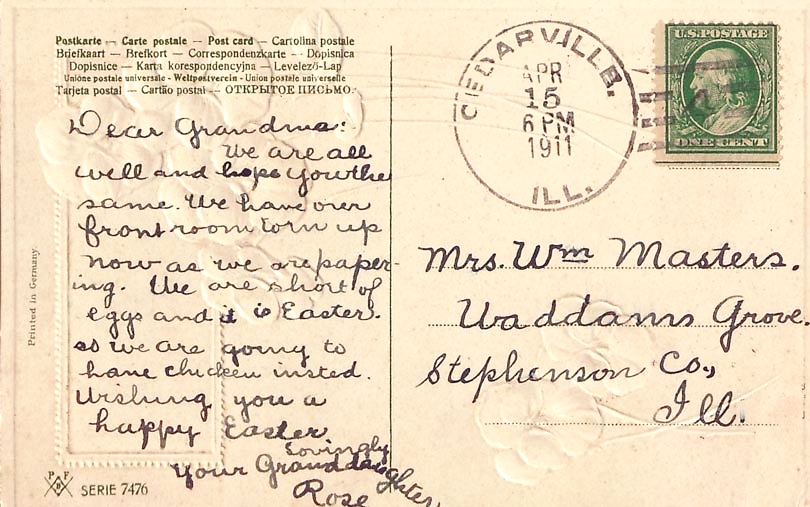 Postkarte — Carte postale — Post card — Cartolina postale
Briefkaart — Brefkort — Correspondenzkarte — Dopisnica
Dopisnice — Karta korespondencyjna — Levelező-Lap
Unione postale universale - Weltpostverein - Union postale universelle
Tarjeta postal — Cartão postal — ОТКРЫТОЕ ПИСЬМО.
Dear Grandma:
We are all
well and hope you the
same. We have over
front room torn up
now as we are paper-
ing. We are short of
eggs and it is Easter.
so we are going to
have chicken insted.
Wishing you a
happy Easter
Lovingly
Your Granddaughter
Rose
Printed in Germany
P F B
SERIE 7476
CEDARVILLE.
APR
15
6 PM
1911
ILL.
U.S. POSTAGE
ONE CENT
Mrs. Wm Masters.
Waddams Grove.
Stephenson Co.,
Ill.